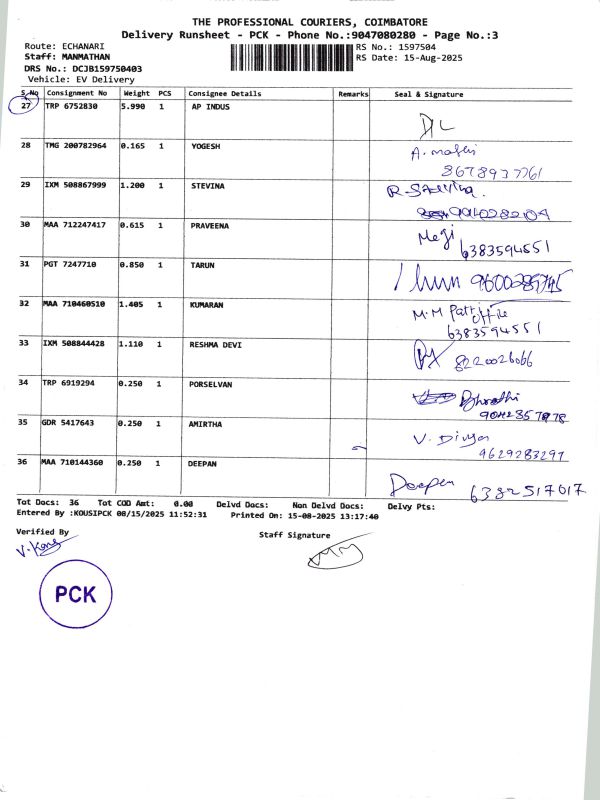 THE PROFESSIONAL COURIERS, COIMBATORE
Delivery Runsheet - PCK - Phone No.:9047080280 - Page No.:3
Route: ECHANARI
RS No.: 1597504
Staff: MANMATHAN
RS Date: 15-Aug-2025
DRS No.: DCJB159750403
Vehicle: EV Delivery
S.No Consignment No Weight PCS Consignee Details Remarks Seal & Signature
27 TRP 6752830 5.990 1 AP INDUS
28 TMG 200782964 0.165 1 YOGESH
8678937761
29 IXM 508867999 1.200 1 STEVINA
30 MAA 712247417 0.615 1 PRAVEENA Megi
6383594551
31 PGT 7247710 0.850 1 TARUN
32 MAA 710460510 1.405 1 KUMARAN M.M
6383594551
33 IXM 508844428 1.110 1 RESHMA DEVI
8220026066
34 TRP 6919294 0.250 1 PORSELVAN
35 GDR 5417643 0.250 1 AMIRTHA V. Divya
9629283297
36 MAA 710144360 0.250 1 DEEPAN
Deepan 6382517017
Tot Docs: 36 Tot COD Amt: 0.00 Delvd Docs: Non Delvd Docs: Delvy Pts:
Entered By :KOUSIPCK 08/15/2025 11:52:31 Printed On: 15-08-2025 13:17:40
Verified By
Staff Signature
PCK